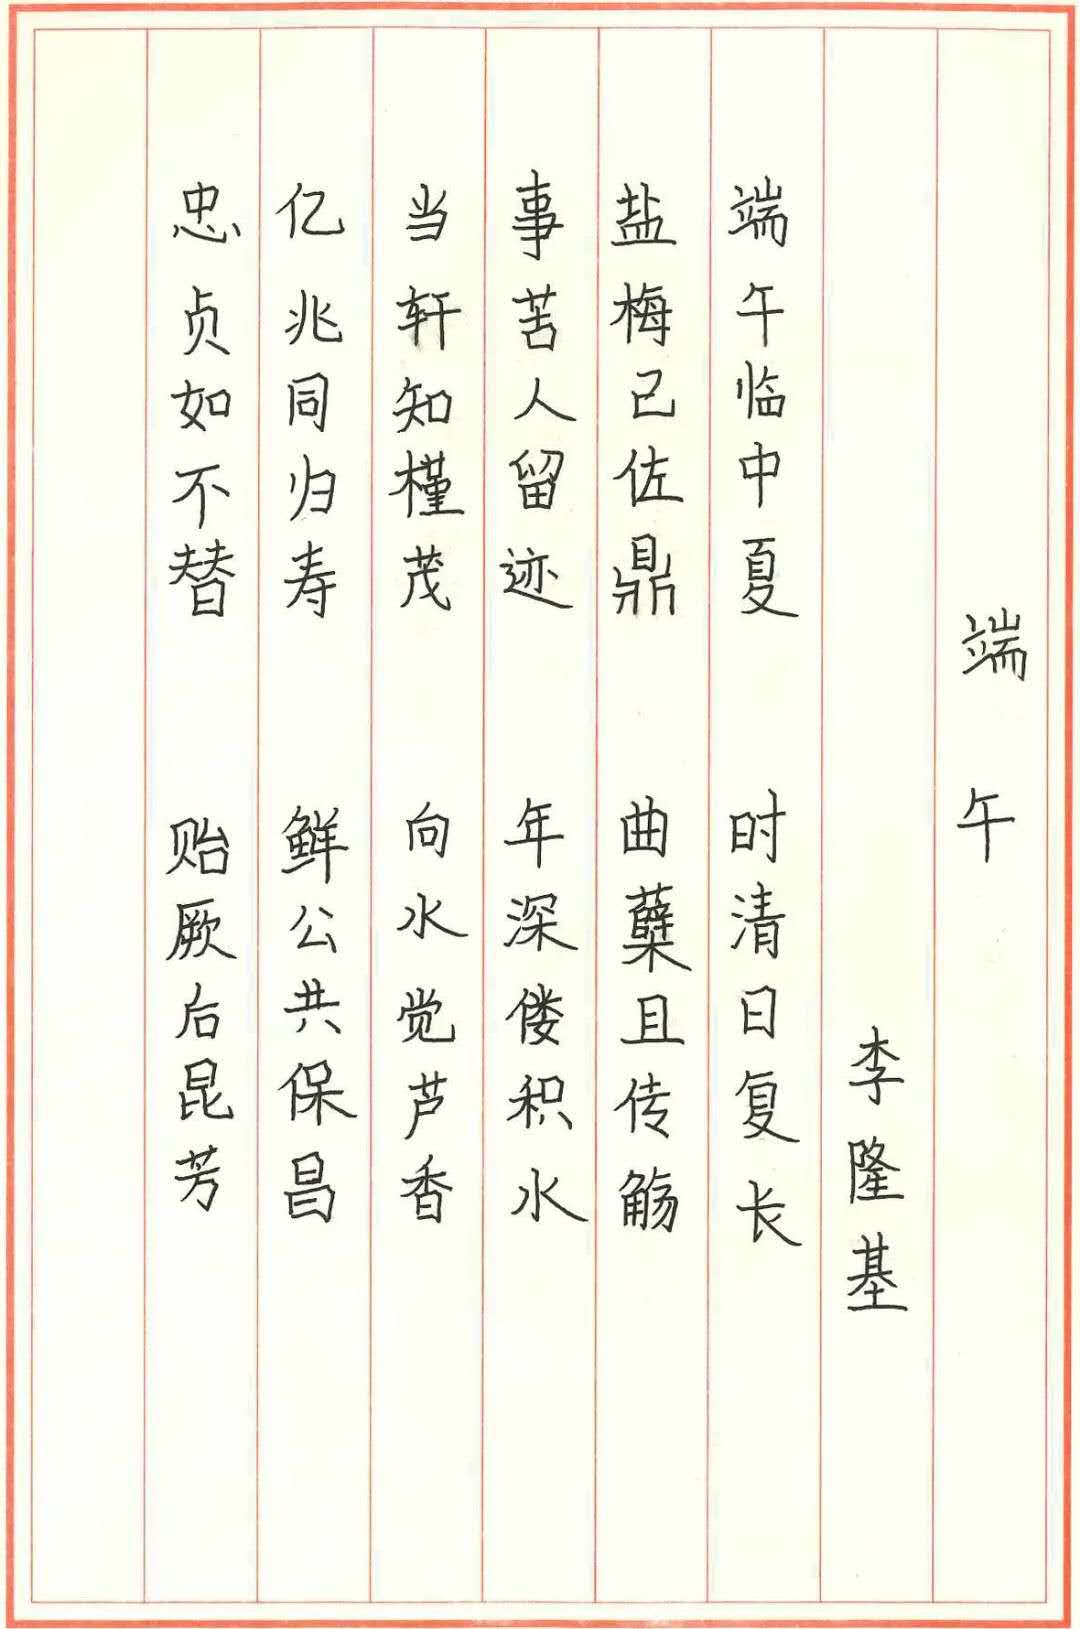 端午
李隆基
端午临中夏 时清日复长
盐梅已佐鼎 曲蘖且传觞
事苦人留迹 年深偻积水
当轩知槿茂 向水觉芦香
亿兆同归寿 鲜公共保昌
忠贞如不替 贻厥后昆芳